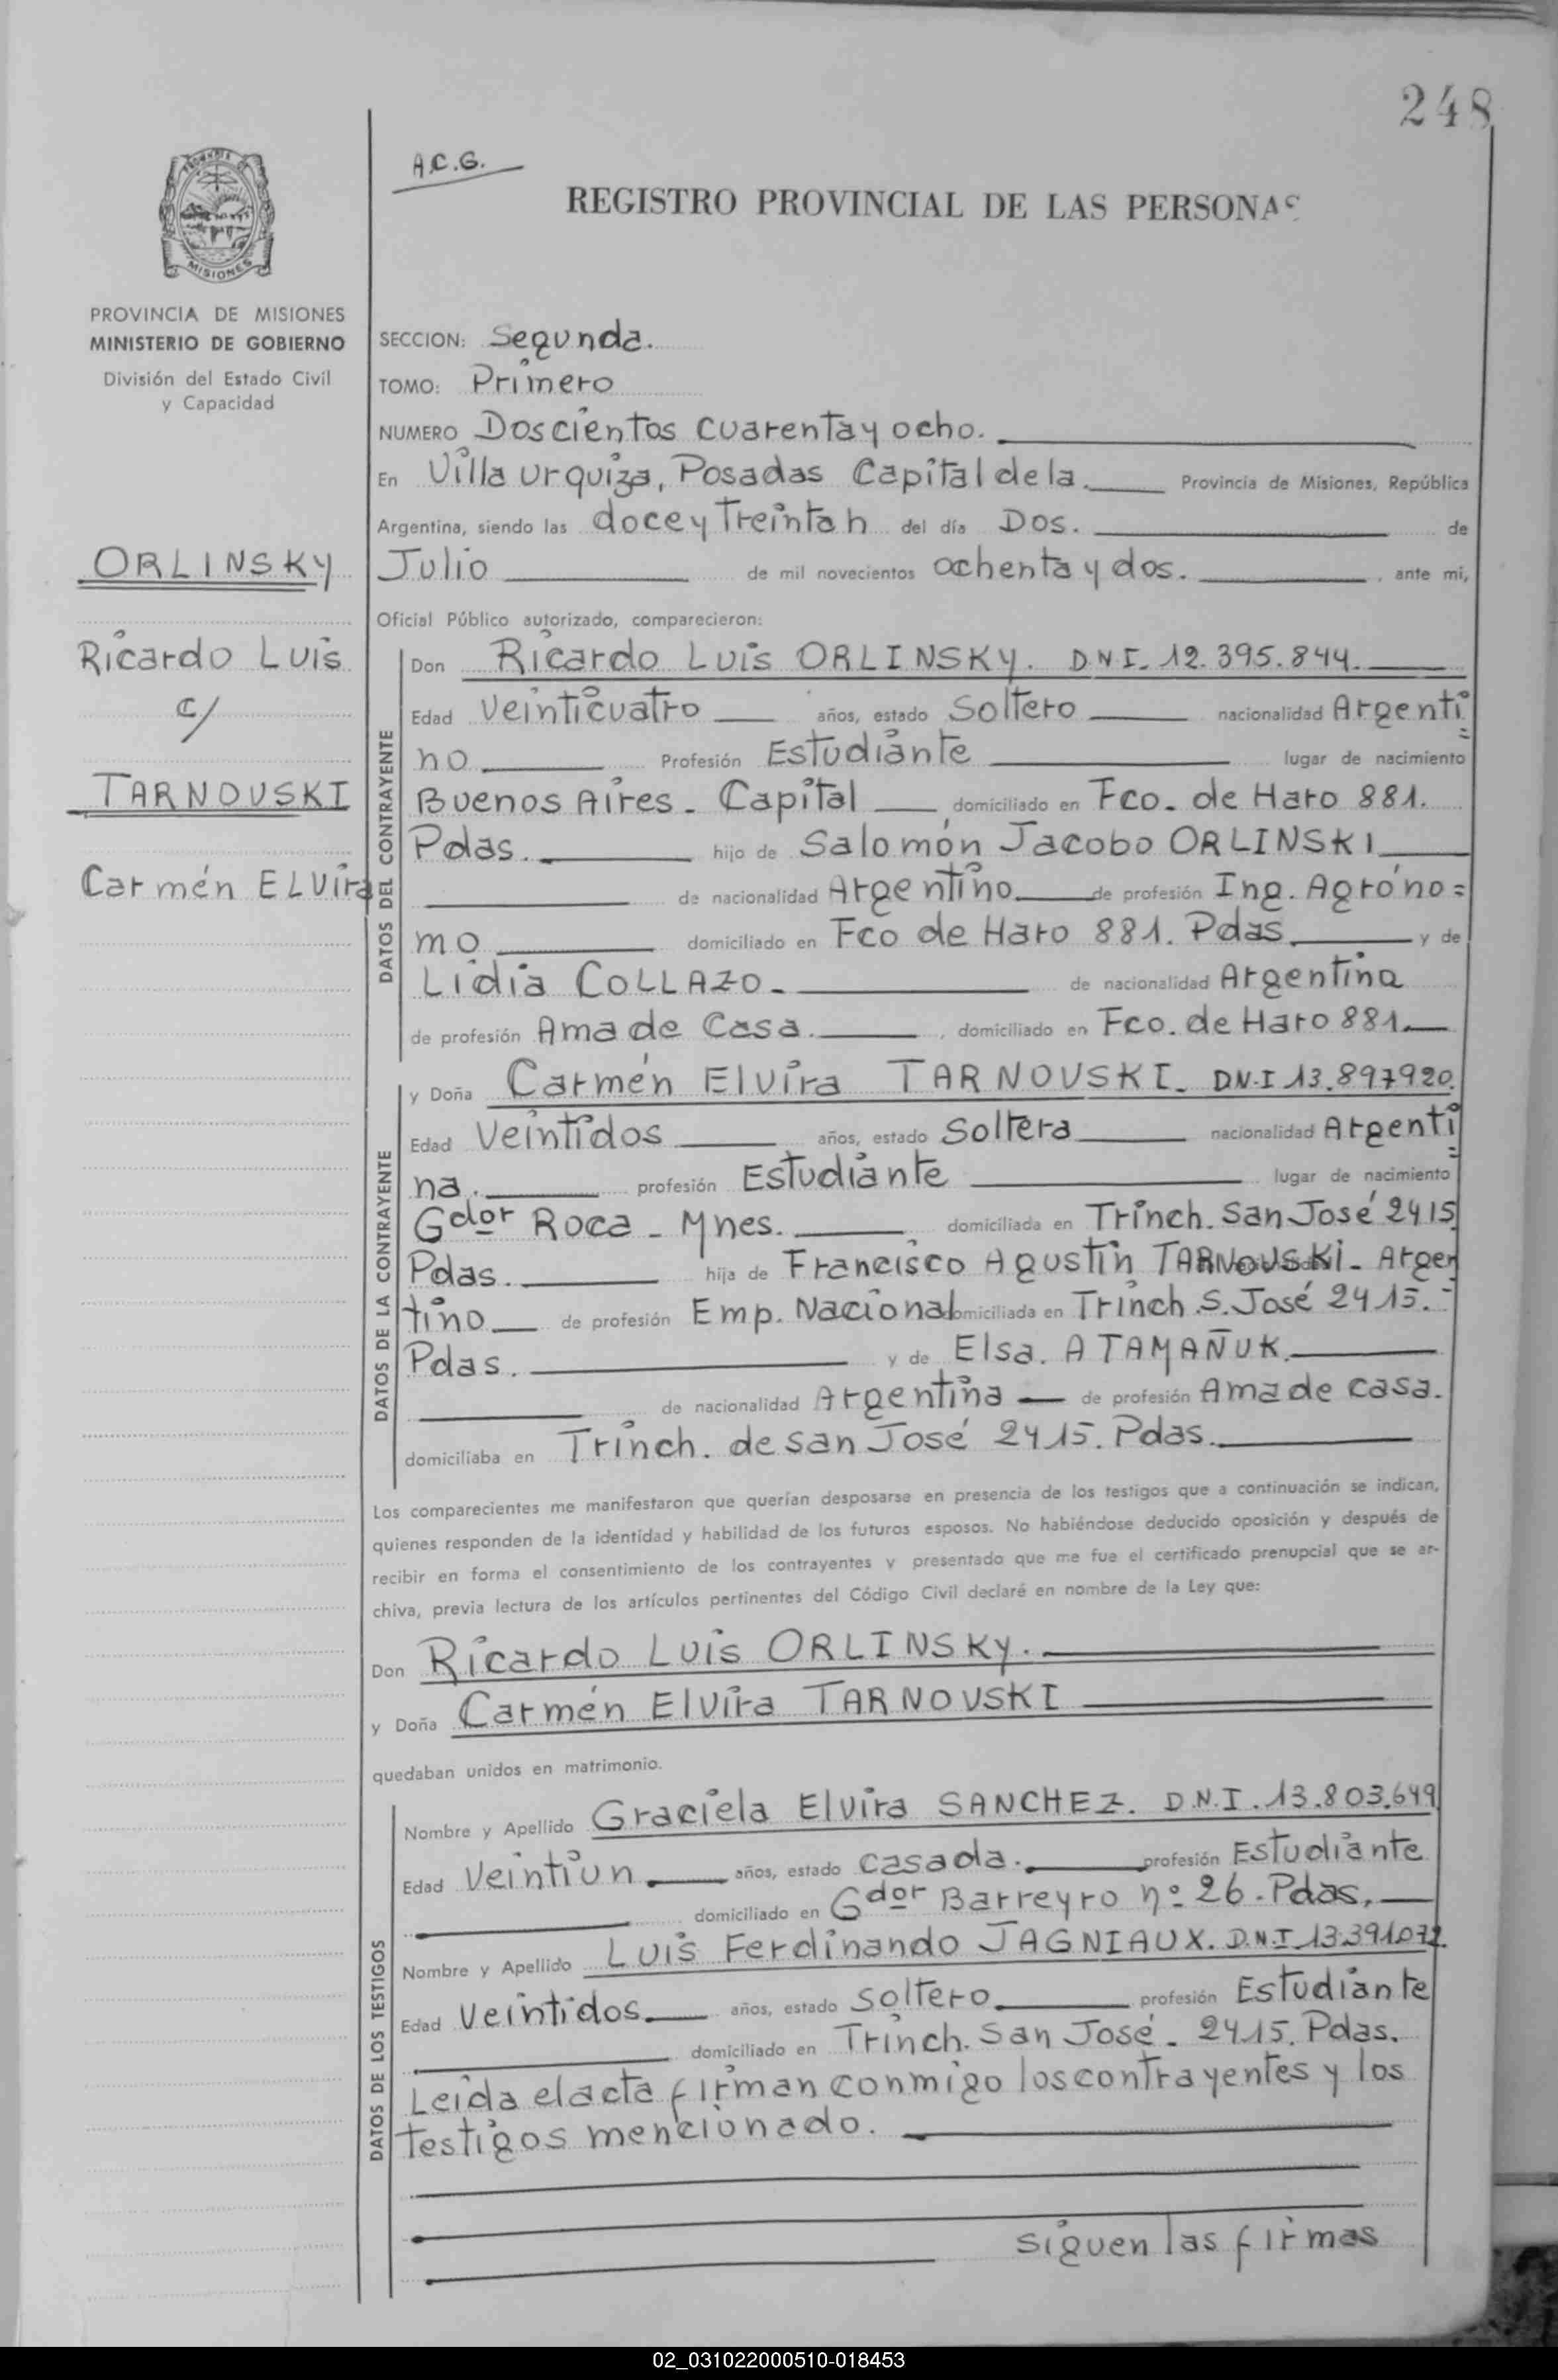 248
A.C.G.
REGISTRO PROVINCIAL DE LAS PERSONAS
MISIONES
PROVINCIA DE MISIONES
MINISTERIO DE GOBIERNO
División del Estado Civil
y Capacidad
ORLINSKY
Ricardo Luis
c/
TARNOUSKI
Carmén ELvira
SECCION: Segunda.
TOMO: Primero
NUMERO Doscientos cuarenta y ocho.
En Villa Urquiza, Posadas Capital de la. Provincia de Misiones, República
Argentina, siendo las doce y Treinta h del día Dos. de
Julio de mil novecientos ochenta y dos. , ante mi,
Oficial Público autorizado, comparecieron:
DATOS DEL CONTRAYENTE
Don Ricardo Luis ORLINSKY. D.N.I. 12.395.844.
Edad Veinticuatro años, estado Soltero nacionalidad Argenti=
no Profesión Estudiante lugar de nacimiento
Buenos Aires. Capital , domiciliado en Fco. de Haro 881.
Pdas. hijo de Salomón Jacobo ORLINSKI
de nacionalidad Argentino de profesión Ing. Agróno=
mo domiciliado en Fco de Haro 881. Pdas. y de
Lidia COLLAZO. de nacionalidad Argentina
de profesión Ama de Casa. , domiciliado en Fco. de Haro 881.
DATOS DE LA CONTRAYENTE
y Doña Carmén Elvira TARNOUSKI. D.N.I 13.897920.
Edad Veintidos años, estado Soltera nacionalidad Argenti=
na. profesión Estudiante lugar de nacimiento
Gdor Roca - Mnes. domiciliada en Trinch. San José 2415
Pdas. hija de Francisco Agustín TARNOUSKI. Argen
tino de profesión Emp. Nacional domiciliada en Trinch. S. José 2415. -
Pdas. y de Elsa. ATAMAÑUK.
de nacionalidad Argentina de profesión Ama de casa.
domiciliaba en Trinch. de san José 2415. Pdas.
Los comparecientes me manifestaron que querían desposarse en presencia de los testigos que a continuación se indican,
quienes responden de la identidad y habilidad de los futuros esposos. No habiéndose deducido oposición y después de
recibir en forma el consentimiento de los contrayentes y presentado que me fue el certificado prenupcial que se ar-
chiva, previa lectura de los artículos pertinentes del Código Civil declaré en nombre de la Ley que:
Don Ricardo Luis ORLINSKY.
y Doña Carmén Elvira TARNOVSKI
quedaban unidos en matrimonio.
DATOS DE LOS TESTIGOS
Nombre y Apellido Graciela Elvira SANCHEZ. D.N.I. 13.803.649
Edad Veintiun años, estado casada. profesión Estudiante
domiciliado en Gdor Barreyro nº 26. Pdas.
Nombre y Apellido Luis Ferdinando JAGNIAUX. D.N.I 13391072.
Edad Veintidos años, estado soltero profesión Estudiante
domiciliado en Trinch. San José. 2415. Pdas.
Leida el acta firman conmigo los contrayentes y los
testigos mencionado.
siguen las firmas
02_031022000510-018453